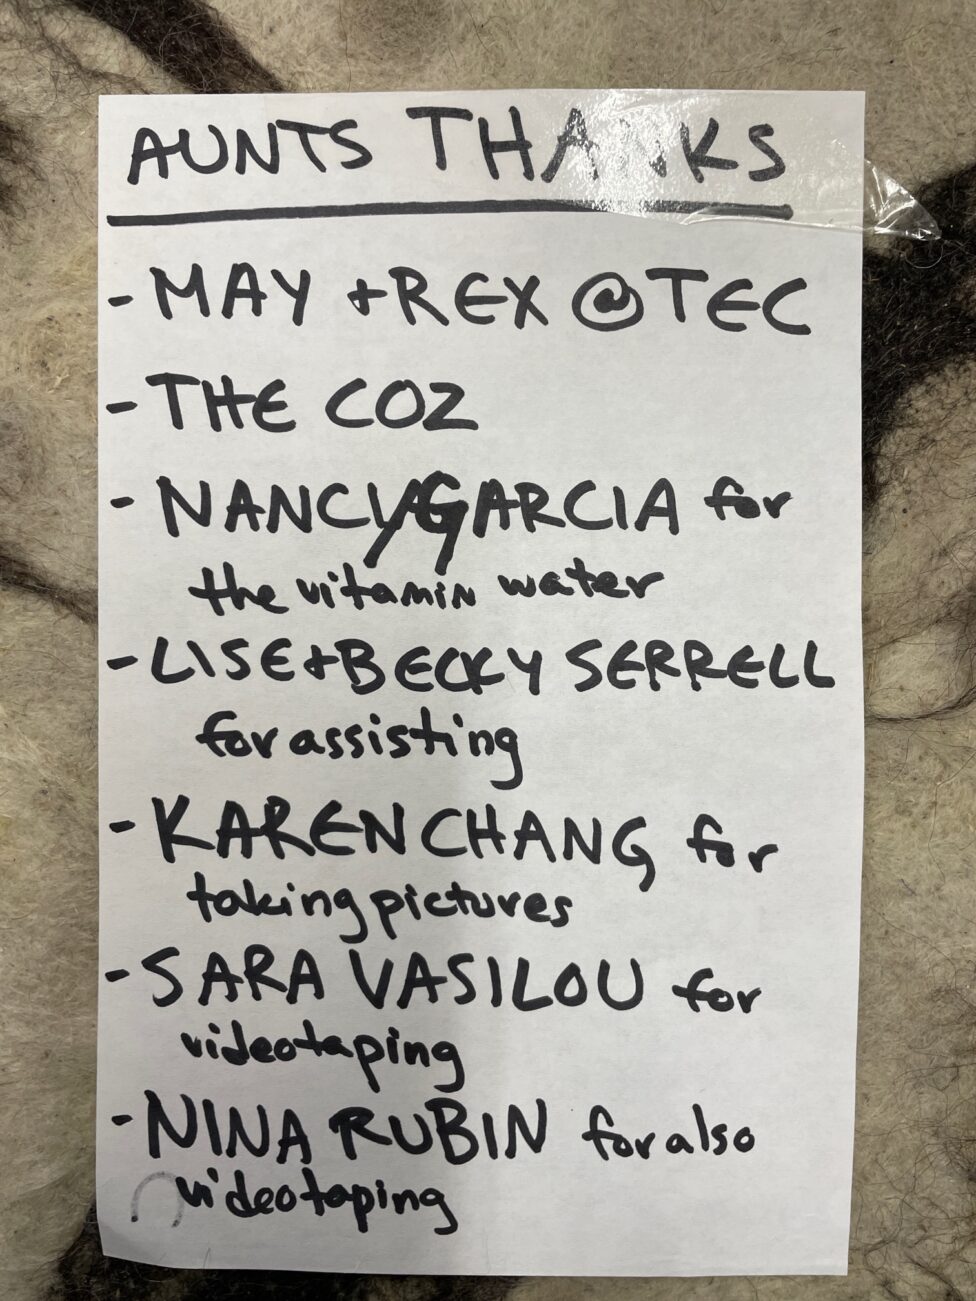 AUNTS THANKS
- MAY + REX @ TEC
- THE COZ
- NANCY GARCIA for
the vitamin water
- LISE + BECKY SERRELL
for assisting
- KAREN CHANG for
taking pictures
- SARA VASILOU for
videotaping
- NINA RUBIN for also
videotaping